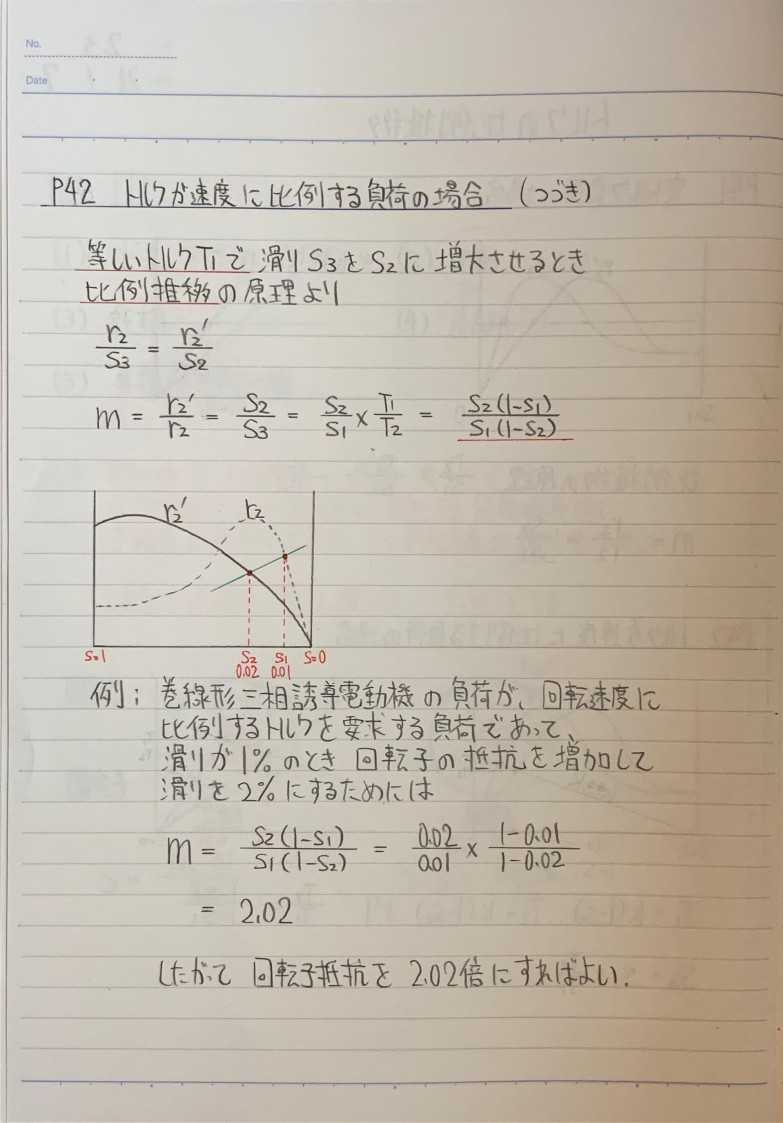 No.
Date
P42 トルクが速度に比例する負荷の場合 (つづき)
等しいトルクT₁で 滑りS₃をS₂に増大させるとき
比例推移の原理より
r₂/S₃ = r₂'/S₂
m = r₂'/r₂ = S₂/S₃ = S₂/S₁ × T₁/T₂ = S₂(1-S₁)/S₁(1-S₂)
r₂' r₂
S=1 S₂ S₁ S=0
0.02 0.01
例; 巻線形三相誘導電動機の負荷が、回転速度に
比例するトルクを要求する負荷であって、
滑りが1%のとき 回転子の抵抗を増加して
滑りを2%にするためには
m = S₂(1-S₁)/S₁(1-S₂) = 0.02/0.01 × 1-0.01/1-0.02
= 2.02
したがって 回転子抵抗を 2.02倍にすればよい.